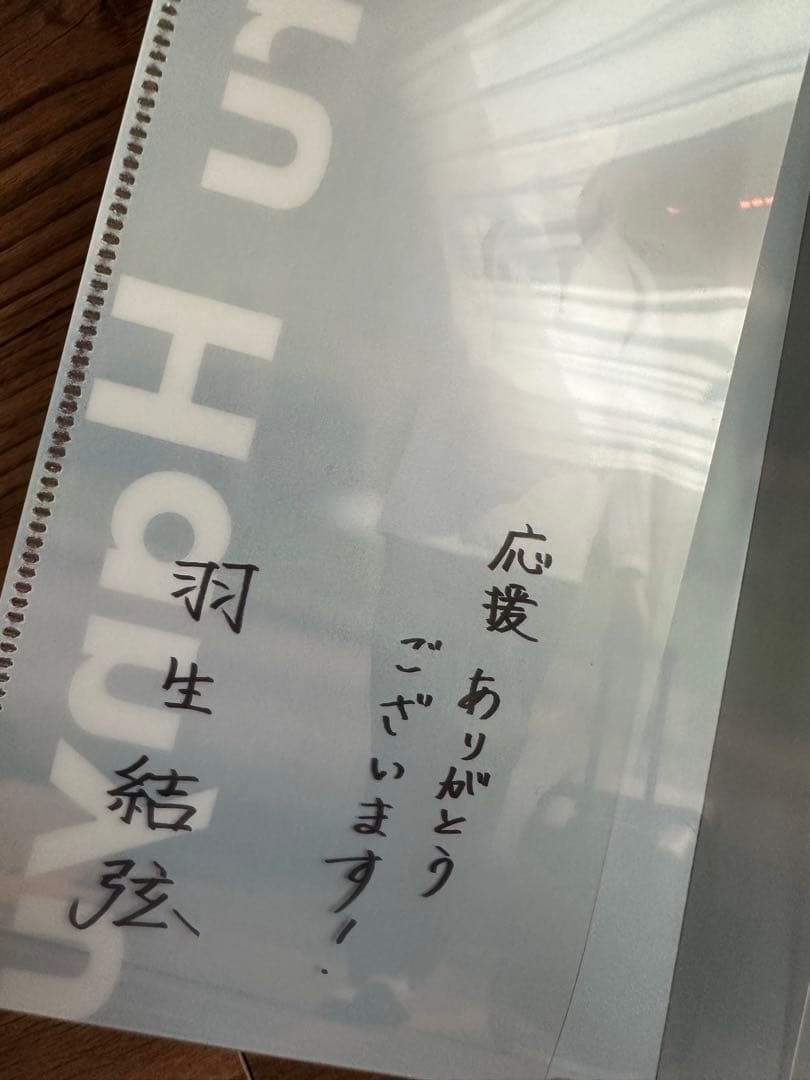 応援 ありがとう
ございます!
羽生結弦
Yuzuru Hanyu